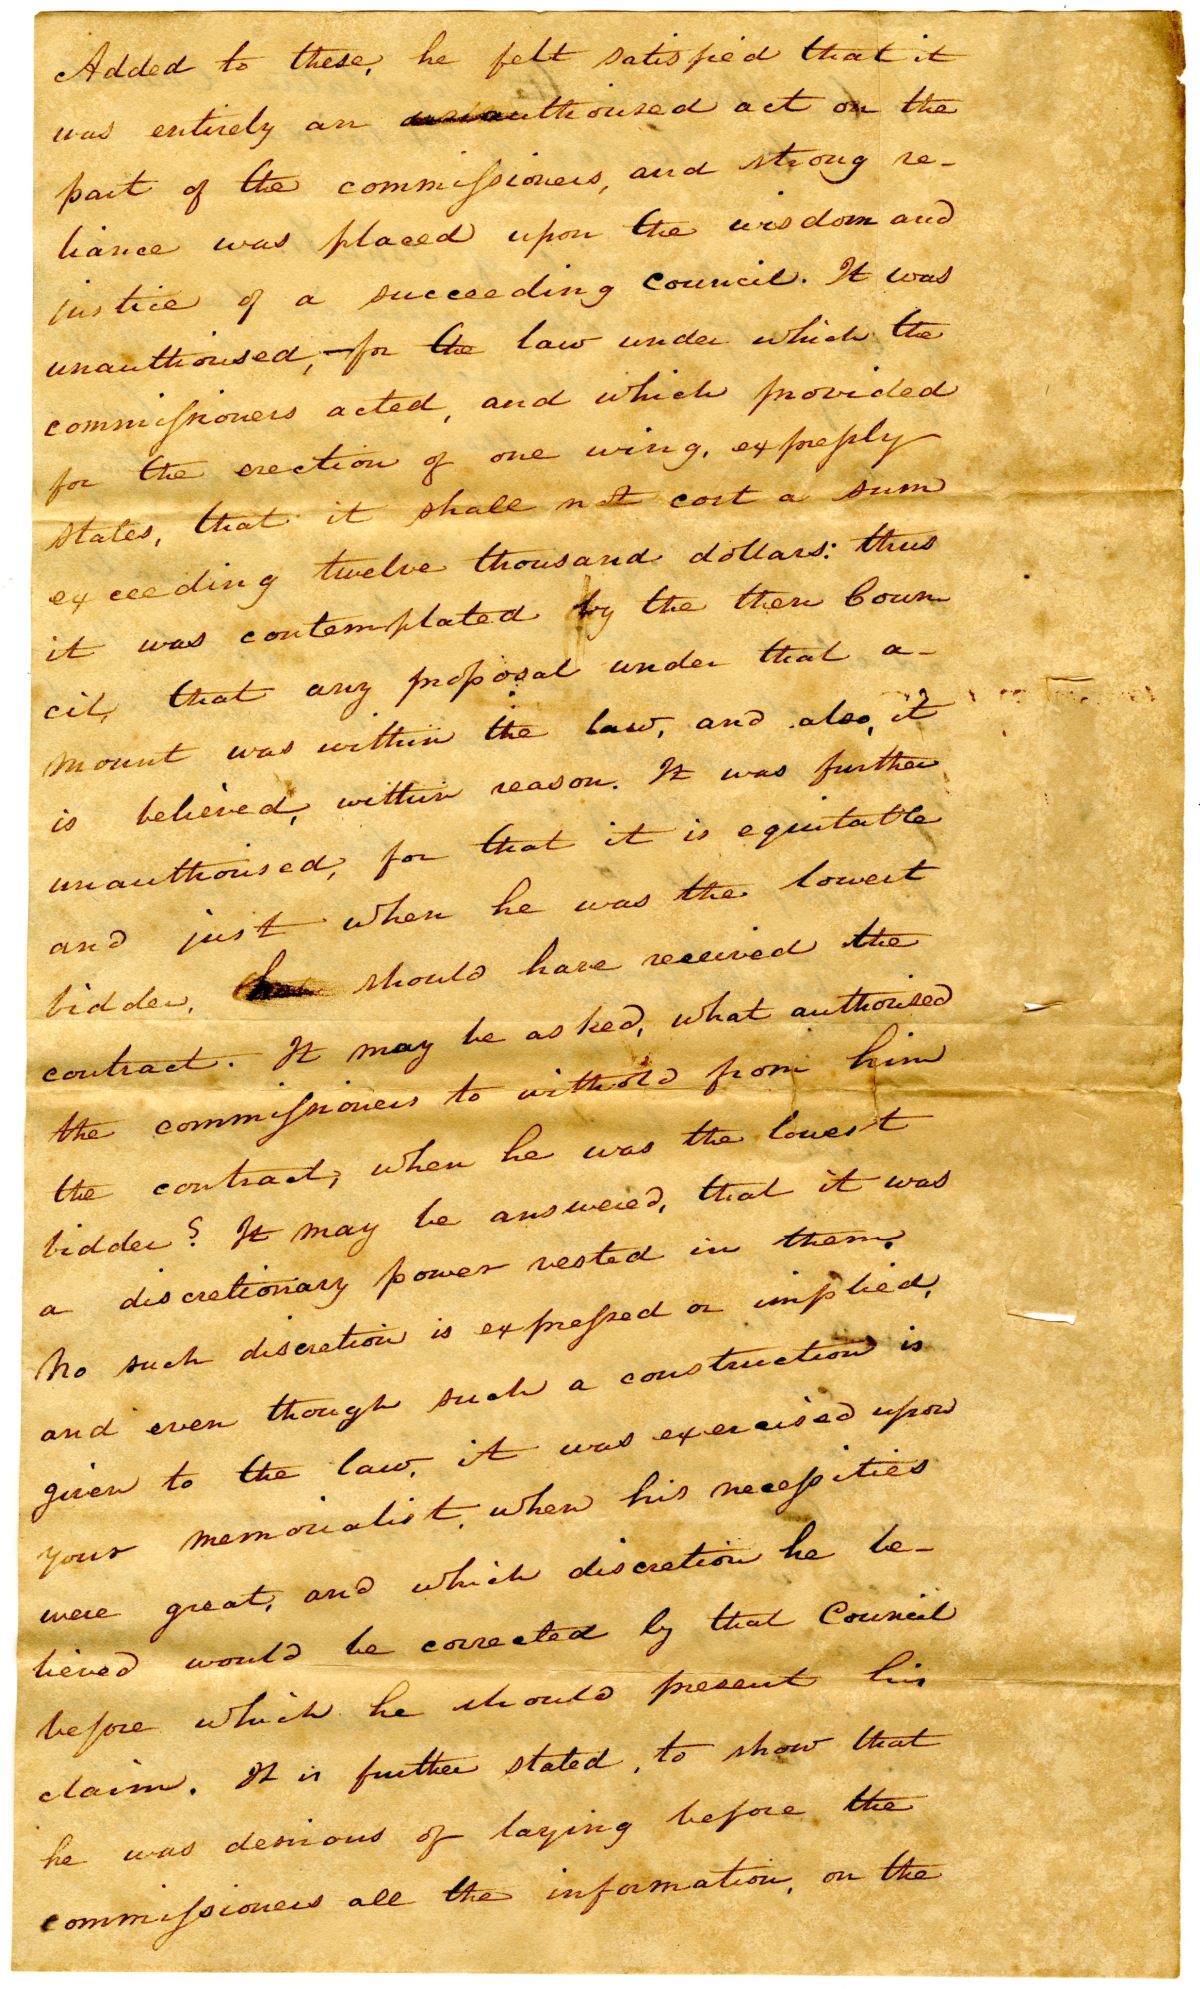 Added to these, he felt satisfied that it
was entirely an unauthorised act on the
part of the commissioners, and strong re-
liance was placed upon the wisdom and
justice of a succeeding council. It was
unauthorised, - for the law under which the
commissioners acted, and which provided
for the erection of one wing, expressly
states, that it shall not cost a sum
exceeding twelve thousand dollars: thus
it was contemplated by the then Coun
cil, that any proposal under that a-
mount was within the law, and also, it
is believed, within reason. It was further
unauthorised, for that it is equitable
and just when he was the lowest
bidder, should have received the
contract. It may be asked, what authorised
the commissioners to withold from him
the contract, when he was the lowest
bidder? It may be answered, that it was
a discretionary power vested in them.
No such discretion is expressed or implied,
and even though such a construction is
given to the law, it was exercised upon
your memorialist, when his necessities
were great, and which discretion he be-
lieved would be corrected by that Council
before which he should present his
claim. It is further stated, to show that
he was desirous of laying before the
commissioners all the information, on the